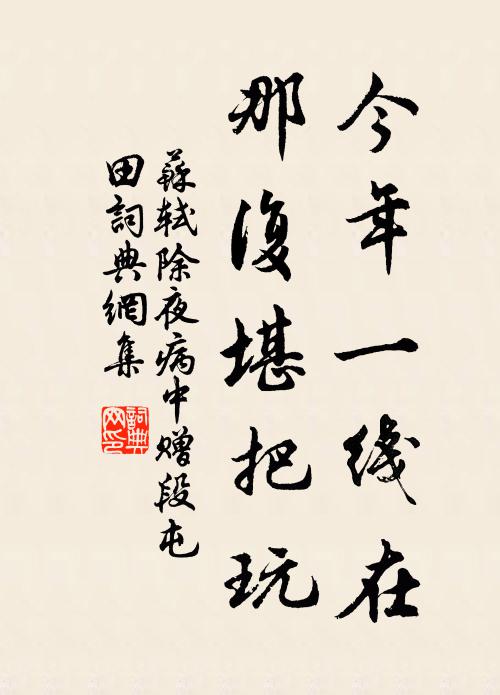 今年一线在
那復堪把玩
蘇轼除夜病中赠段屯
田詞典網集
詞典网印